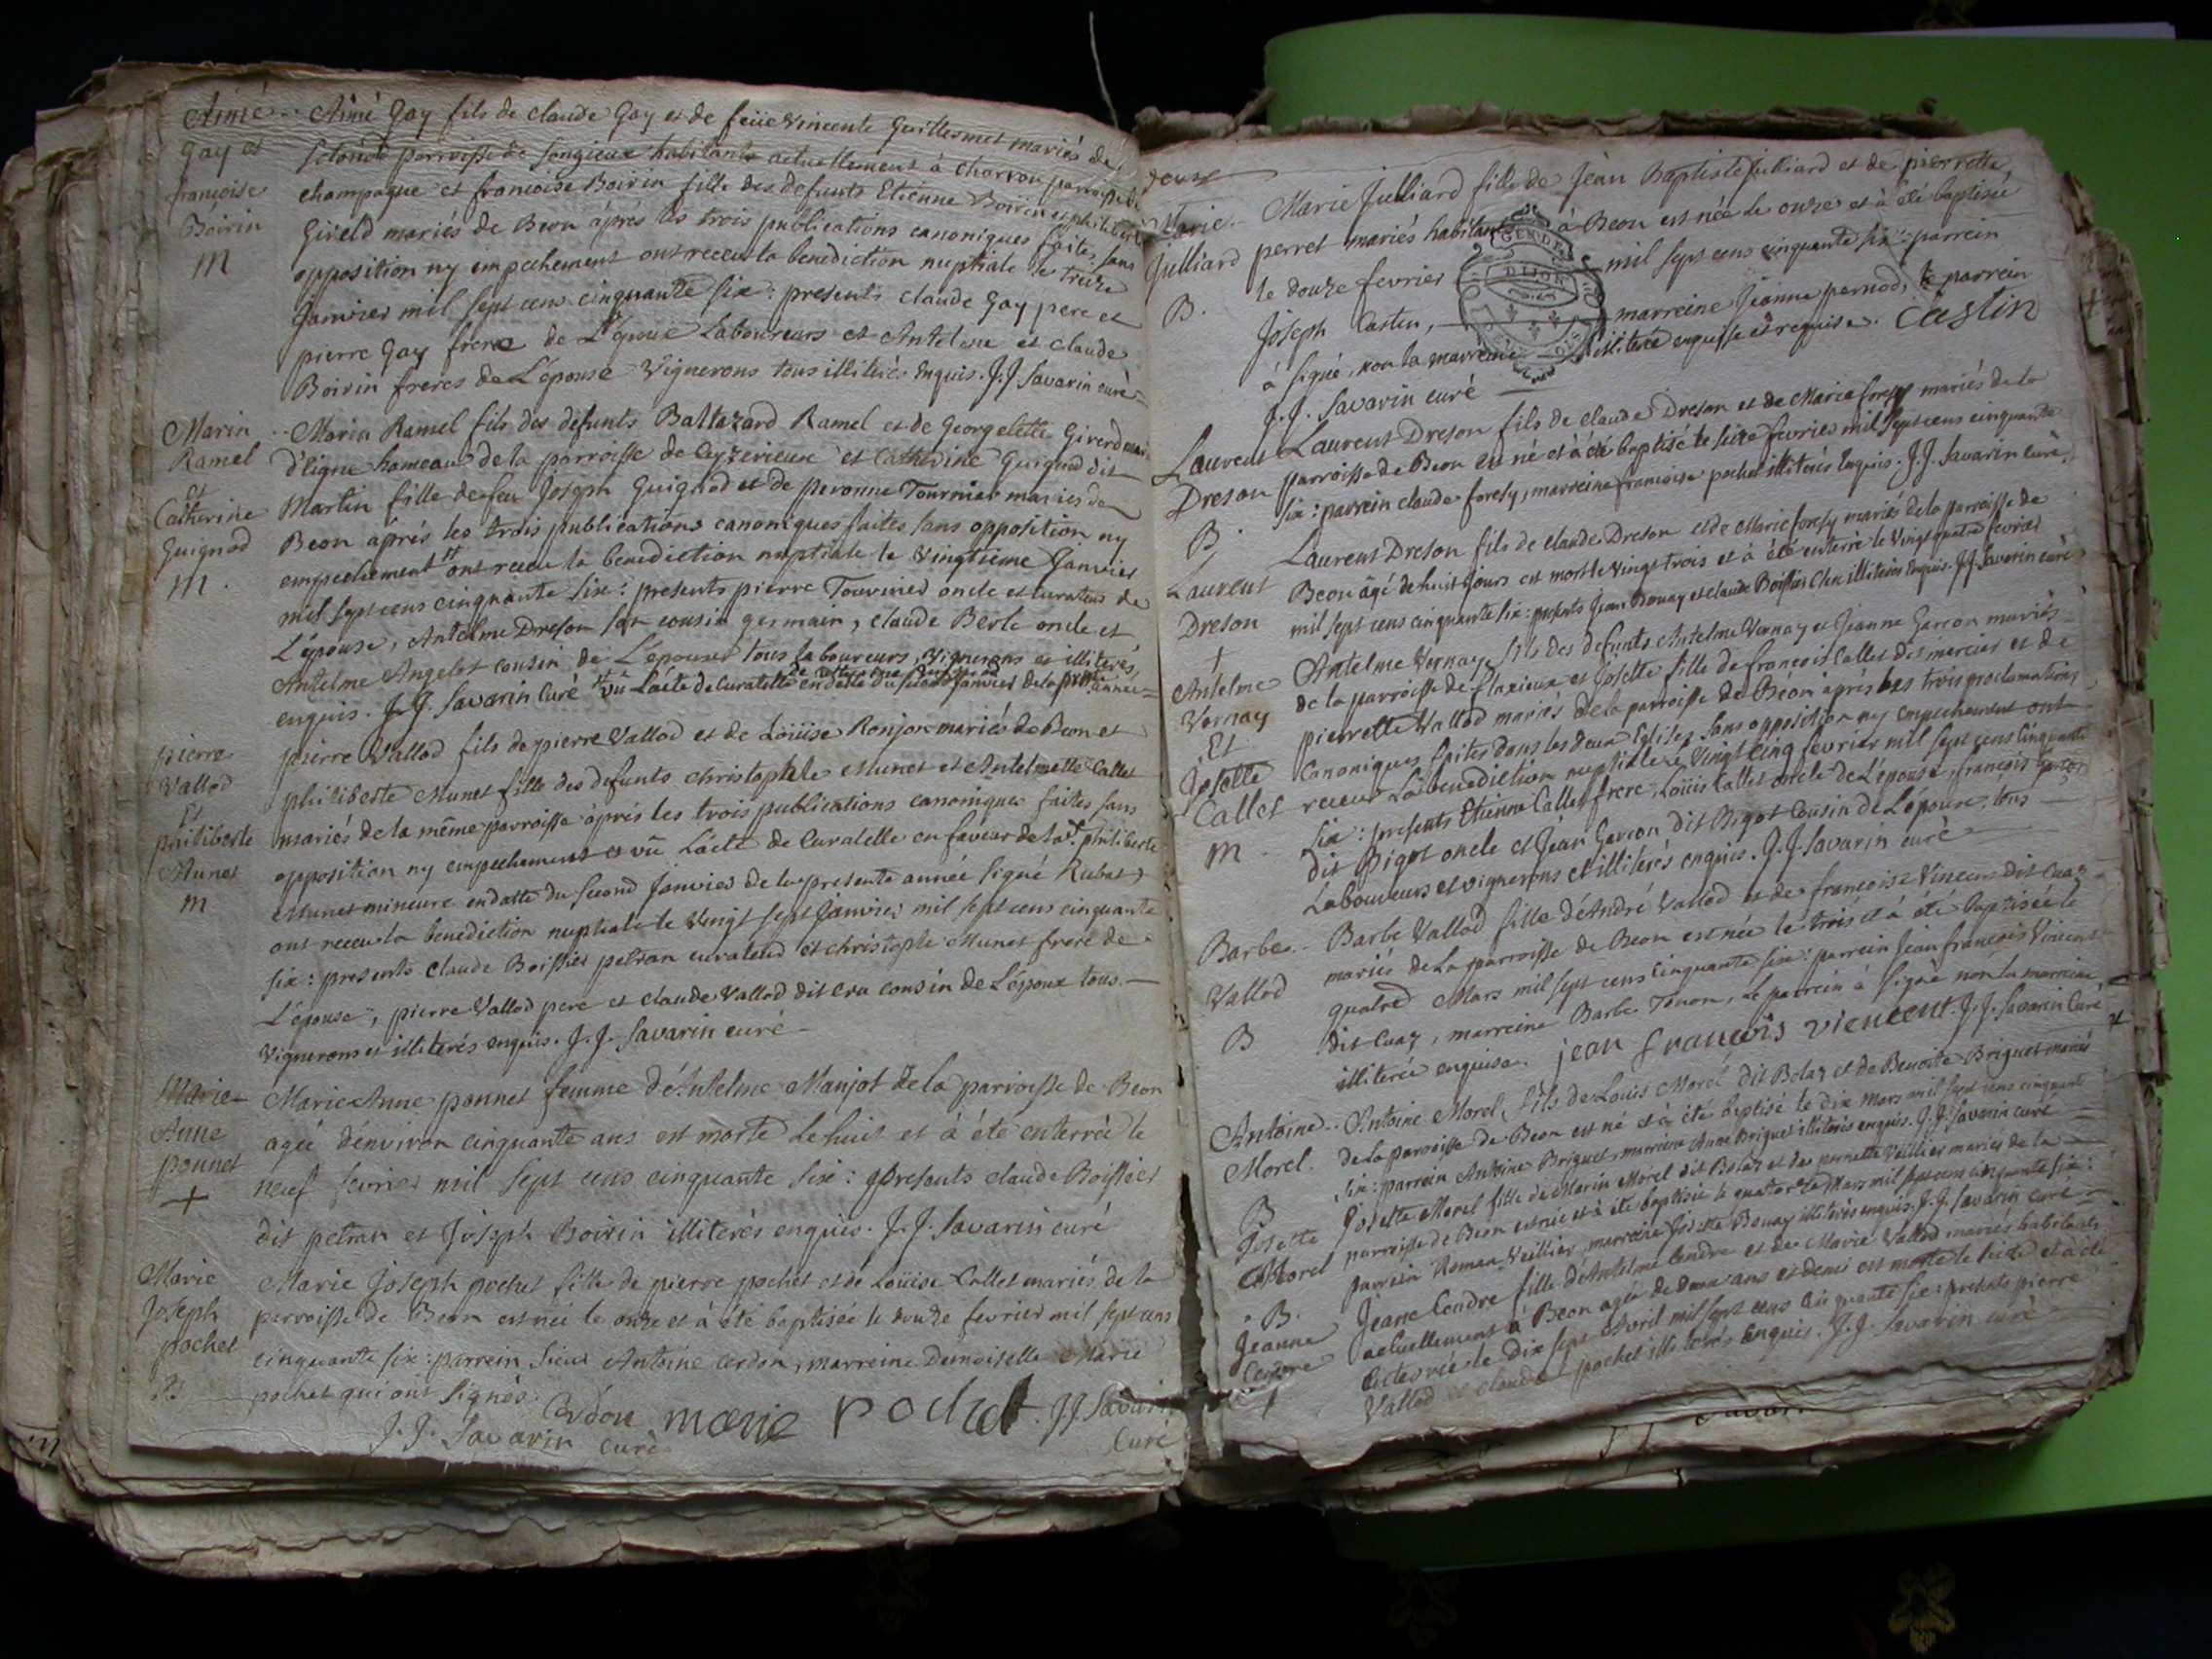 Aimé Gay et françoise Boivin M
Aimé Gay fils de claude Gay et de feüe Vincente Guillermet mariés de
parroisse de songieux habitants actuellement à charron parroisse de
champagne et francoise Boivin fille des defunts Etienne Boivin et philiberte
Gireld mariés de Beon àprés les trois publications canoniques faites, sans
opposition ny empechement ont receu la benediction nuptiale le treize
Janvier mil sept cens cinquante six : presents claude Gay pere et
pierre Gay frere de L'époux Laboureurs et Antelme et claude
Boivin freres de L'épouse Vignerons tous illiterés Enquis. J.J. Savarin curé
Marin Ramel et Catherine Guignod M.
Marin Ramel fils des défunts Baltazard Ramel et de Georgelette Girerd
d'ligne hameau de la parroisse de Ceyzerieux et Catherine Guignod dit
Martin fille de feu Joseph Guignod et de peronne Tournier mariés de
Beon àprés les trois publications canoniques faites sans opposition ny
empechement ont receu la benediction nuptiale le Vingtieme Janvier
mil sept cens cinquante six : presents pierre Tournier oncle et curateur de
L'épouse, Antelme Dreson son cousin germain, claude Berle oncle et
Antelme Angelot cousin de L'époux tous laboureurs, Vignerons et illiterés
enquis. J.J. Savarin Curé vû L'acte de Curatelle en datte du second Janvier de la année
pierre Vallod Et philiberte Munet M
pierre Vallod fils de pierre Vallod et de Loüise Ronjon mariés de Beon et
philiberte Munet fille des defunts christophle Munet et Antelmette Callet
mariés de la même parroisse àprés les trois publications canoniques faites sans
opposition ny empechement et vû L'acte de Curatelle en faveur de lad. philiberte
Munet mineure en datte du second Janvier de la presente année signé Rubat,
ont receu la benediction nuptiale le Vingt sept Janvier mil sept cens cinquante
six : presents Claude Boissier petran curateur et christophle Munet frere de
L'épouse, pierre Vallod pere et claude Vallod dit Cra cousin de L'époux tous
Vignerons et illiterés enquis. J.J. Savarin curé
Marie Anne ponnet +
Marie Anne ponnet femme d'Antelme Manjot de la parroisse de Beon
ageé d'environ cinquante ans est morte le huit et à été enterrée le
neuf fevrier mil sept cens cinquante six : presents claude Boissier
dit petran et Joseph Boivin illiterés enquis. J.J. Savarin curé
Marie Joseph pochet B
Marie Joseph pochet fille de pierre pochet et de Loüise Callet mariés de la
parroisse de Beon est neé le onze et à été baptisée le douze fevrier mil sept cens
cinquante six : parrein Sieur Antoine Cerdon, marreine Demoiselle Marie
pochet qui ont signés.
Cerdon marie pochet J.J. Savarin
J.J. Savarin curé
Curé
Marie Julliard B.
Marie Julliard fille de Jean Baptiste Julliard et de pierrette
perret mariés habitants à Beon est née le onze et à été baptisée
le douze fevrier mil sept cens cinquante six : parrein
Joseph Castin, marreine Jeanne pernod, le parrein
à signé, non la marreine illiterée enquise et requise. Castin
J.J. Savarin curé
Laurent Dreson B
Laurent Dreson fils de claude Dreson et de Marie foresy mariés de la
parroisse de Beon est né et à été baptisé le seize fevrier mil sept cens cinquante
six : parrein claude foresy, marreine francoise pochet illiterés Enquis. J.J. Savarin curé
Laurent Dreson +
Laurent Dreson fils de claude Dreson et de Marie foresy mariés de la parroisse de
Beon âgé de huit jours est mort le vingt trois et à été enterré le Vingt quatre fevrier
mil sept cens cinquante six : presents Jean Bonay et claude Boissier illiterés Enquis. J.J. Savarin curé
Antelme Vernay Et Josette Callet M
Antelme Vernay fils des defunts Antelme Vernay et Jeanne Garcon mariés
de la parroisse de flaxieux et Josette fille de francois Callet dit mercier et de
pierrette Vallod mariés de la parroisse de Béon àprés les trois proclamations
canoniques faites dans les deux Eglises sans opposition ny empechement ont
receu La benediction nuptiale le Vingt Cinq fevrier mil sept cens Cinquante
six : presents Etienne Callet frere, Loüis Callet oncle de L'épouse, francois Garcon
dit Bigot oncle et Jean Garcon dit Bigot Cousin de L'époux, tous
Laboureurs et vignerons et illiterés enquis. J.J. Savarin curé
Barbe Vallod B
Barbe Vallod fille d'André Vallod et de francoise Vincent dit Cuaz
mariés de La parroisse de Beon est née le trois et à été baptisée le
quatre Mars mil sept cens Cinquante six : parrein Jean francois Vincent
dit Cuaz, marreine Barbe Tonon, Le parrein à signé non la marreine
illiterée enquise. jean francois viencent. J.J. Savarin Curé
Antoine Morel. B
Antoine Morel fils de Louis Morel dit Bolaz et de Benoite Briguet mariés
de la parroisse de Beon est né et à été baptisé le dix Mars mil sept cens cinquante
six : parrein Antoine Briguet, marreine Anne Briguet illiterés enquis. J.J. Savarin curé
Josette Morel B.
Josette Morel fille de Marin Morel dit Bolaz et de pernette Veillier mariés de la
parroisse de Beon est née et à été baptisée le quatorze Mars mil sept cens cinquante six :
parrein Roman Veillier, marreine Josette Bonay illiterés enquis. J.J. Savarin curé
Jeanne Condre +
Jeane Condre fille d'Antelme Condre et de Marie Vallod mariés habitants
actuellement à Beon agée de deux ans et demi est morte le seize et à été
enterrée le dix sept Avril mil sept cens cinquante six : presents pierre
Vallod et claude pochet illiterés Enquis. J.J. Savarin curé